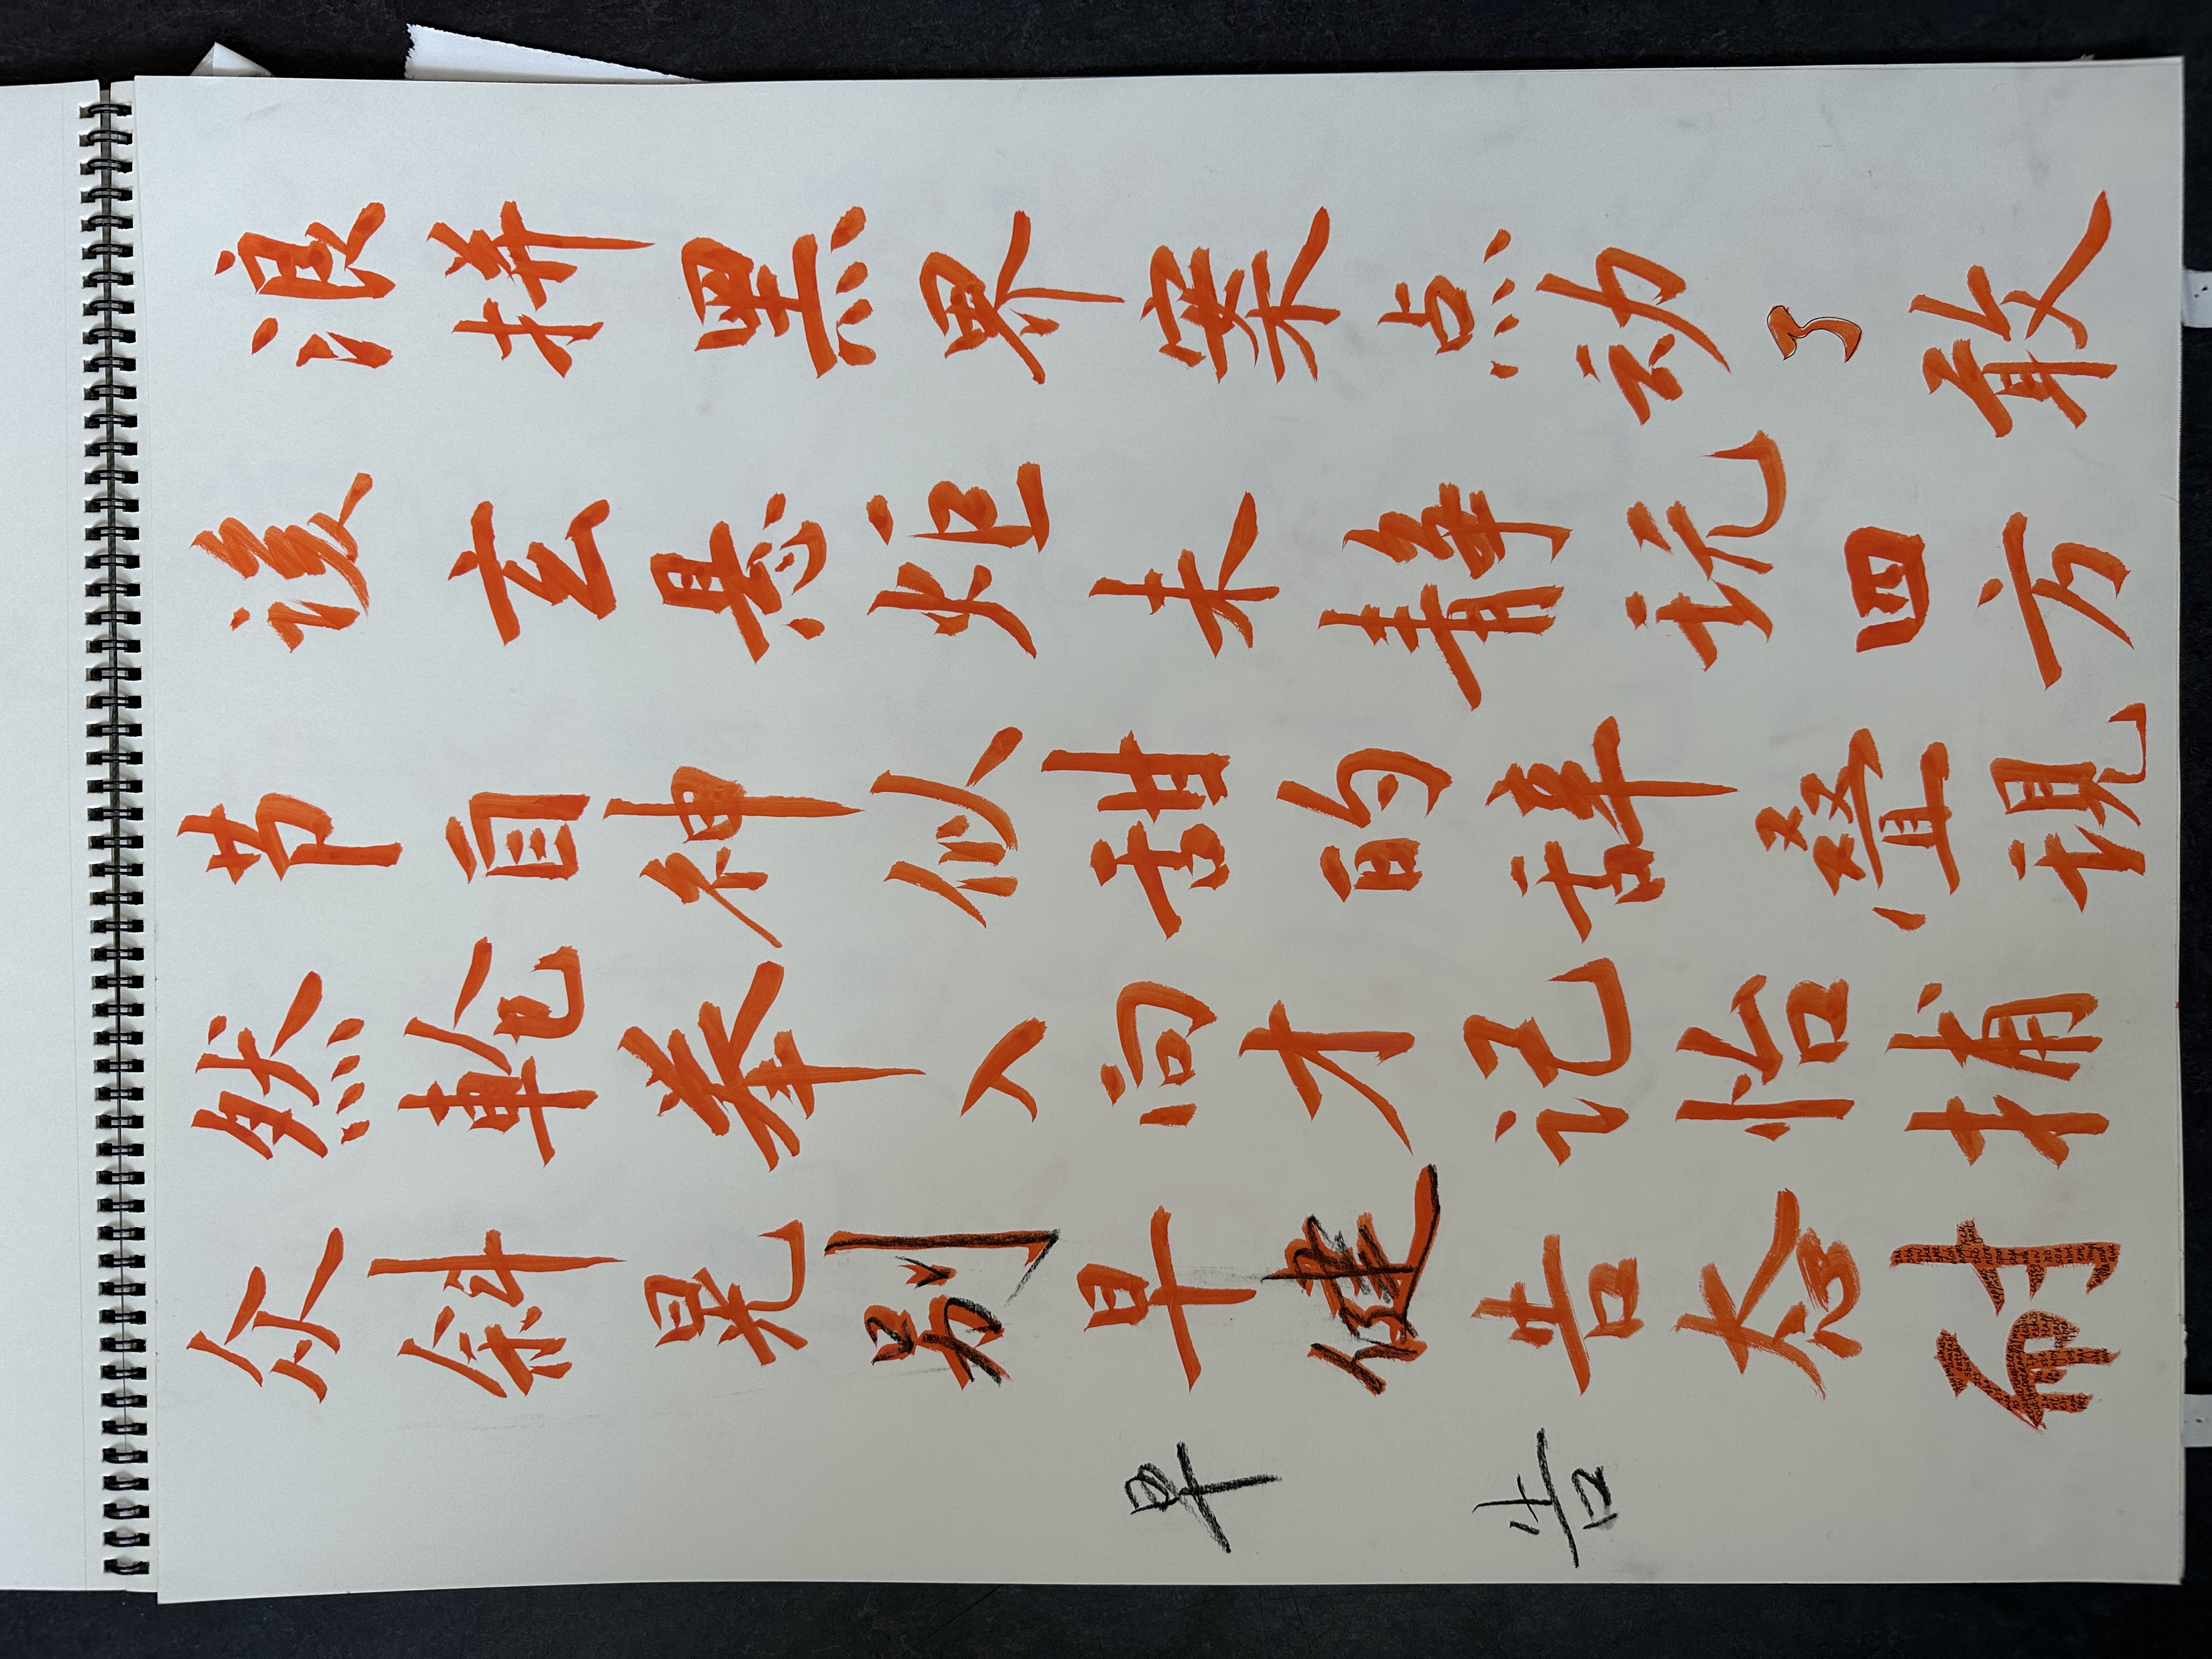 浪拼黑界案点动了敢
该玄悬炬未静玩四方
节自神似甜的辞叠现
然轮举入向才记怡捕
众斜晃别早健告态耐
早告